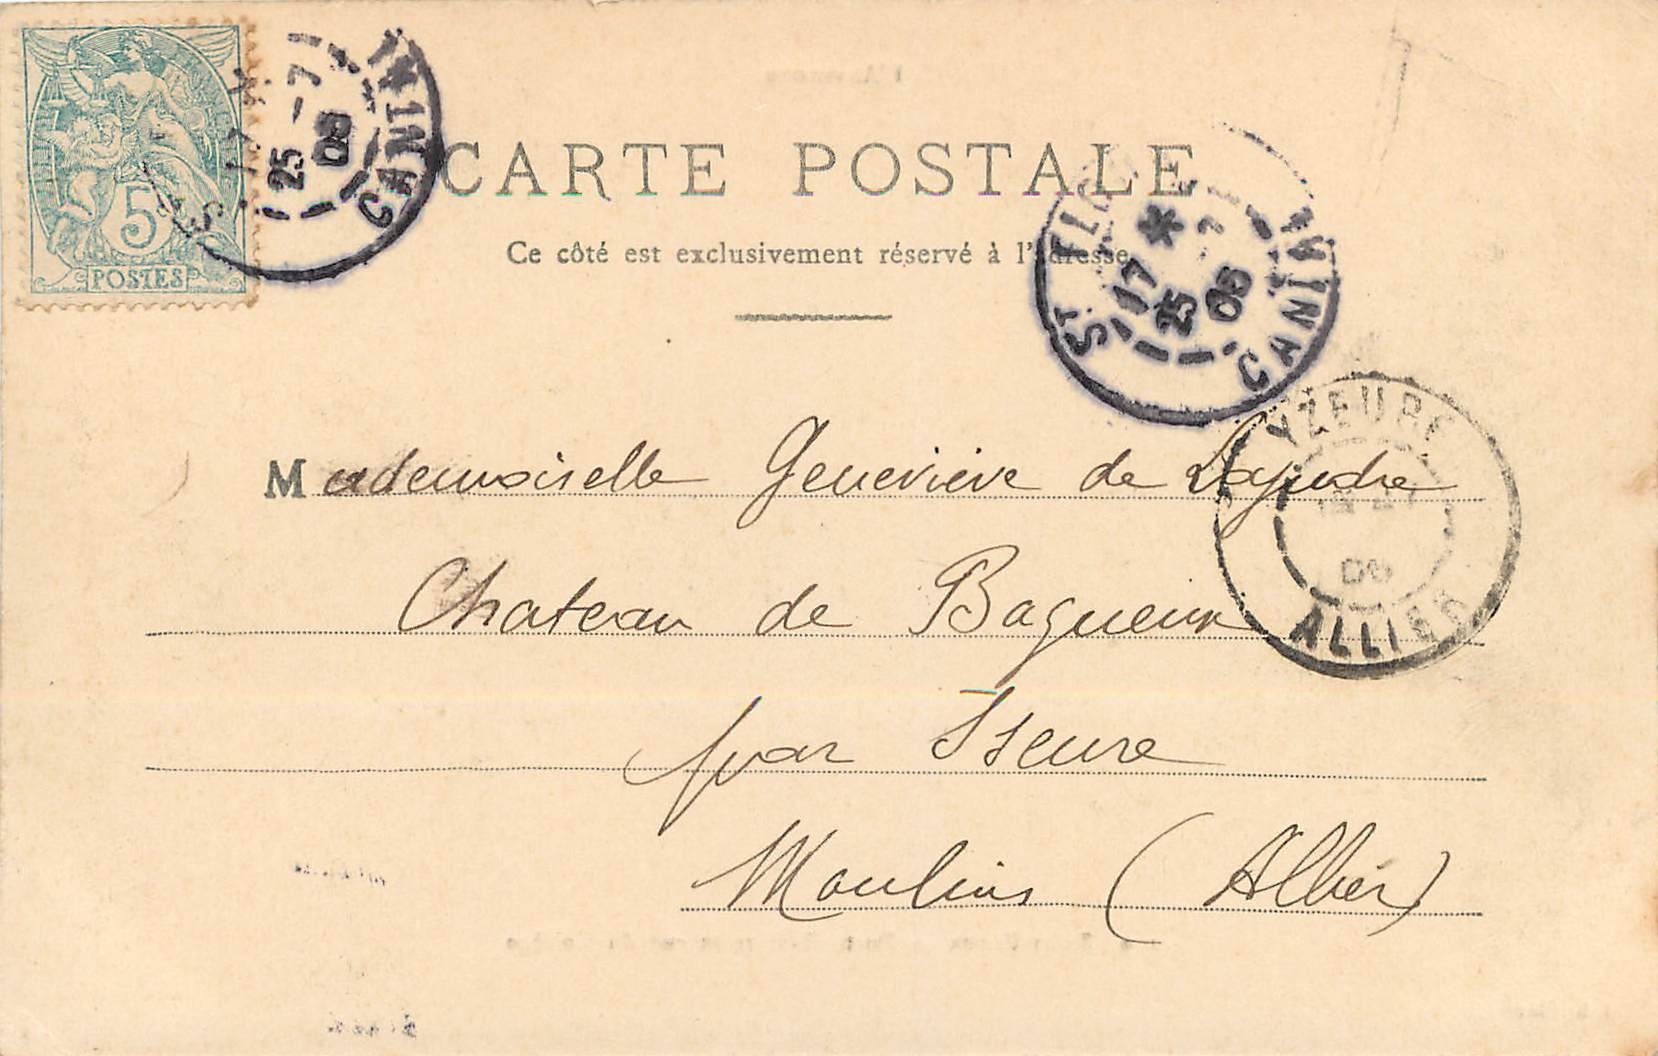 5c
POSTES
25 -7
08
CANTAL
CARTE POSTALE
Ce côté est exclusivement réservé à l'adresse
ST FLOUR
17 *
25 -7
CANTAL
YZEURE
ALLIER
Mademoiselle Geneviève de Lajudie
Chateau de Bagueux
par Iseure
Moulins (Allier)